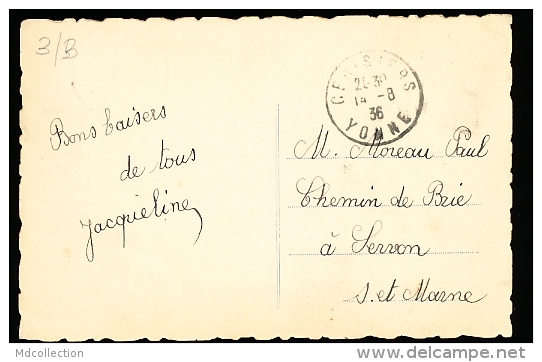 3/B
CERISIERS
14 -8
36
YONNE
Bons baisers
de tous
Jacqueline
M. Moreau Paul
Chemin de Brie
à Servon
S. et Marne
Mdcollection
www.delcampe.net